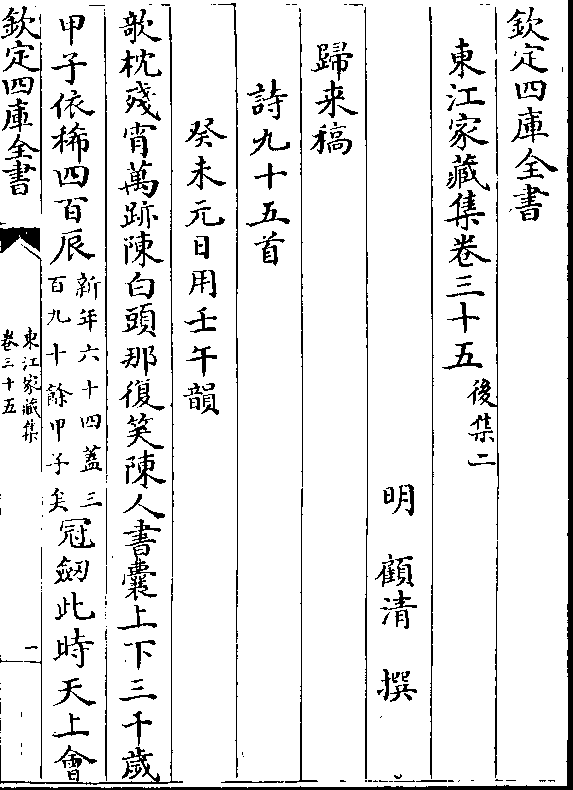 欽定四庫全書
東江家藏集卷三十五 後集二
明 顧清 撰
歸来稿
詩九十五首
癸未元日用壬午韻
欹枕殘宵萬跡陳白頭那復笑陳人書囊上下三千歲
甲子依稀四百辰新年六十四蓋三百九十餘甲子矣冠劒此時天上會
欽定四庫全書
東江家藏集
卷三十五
一